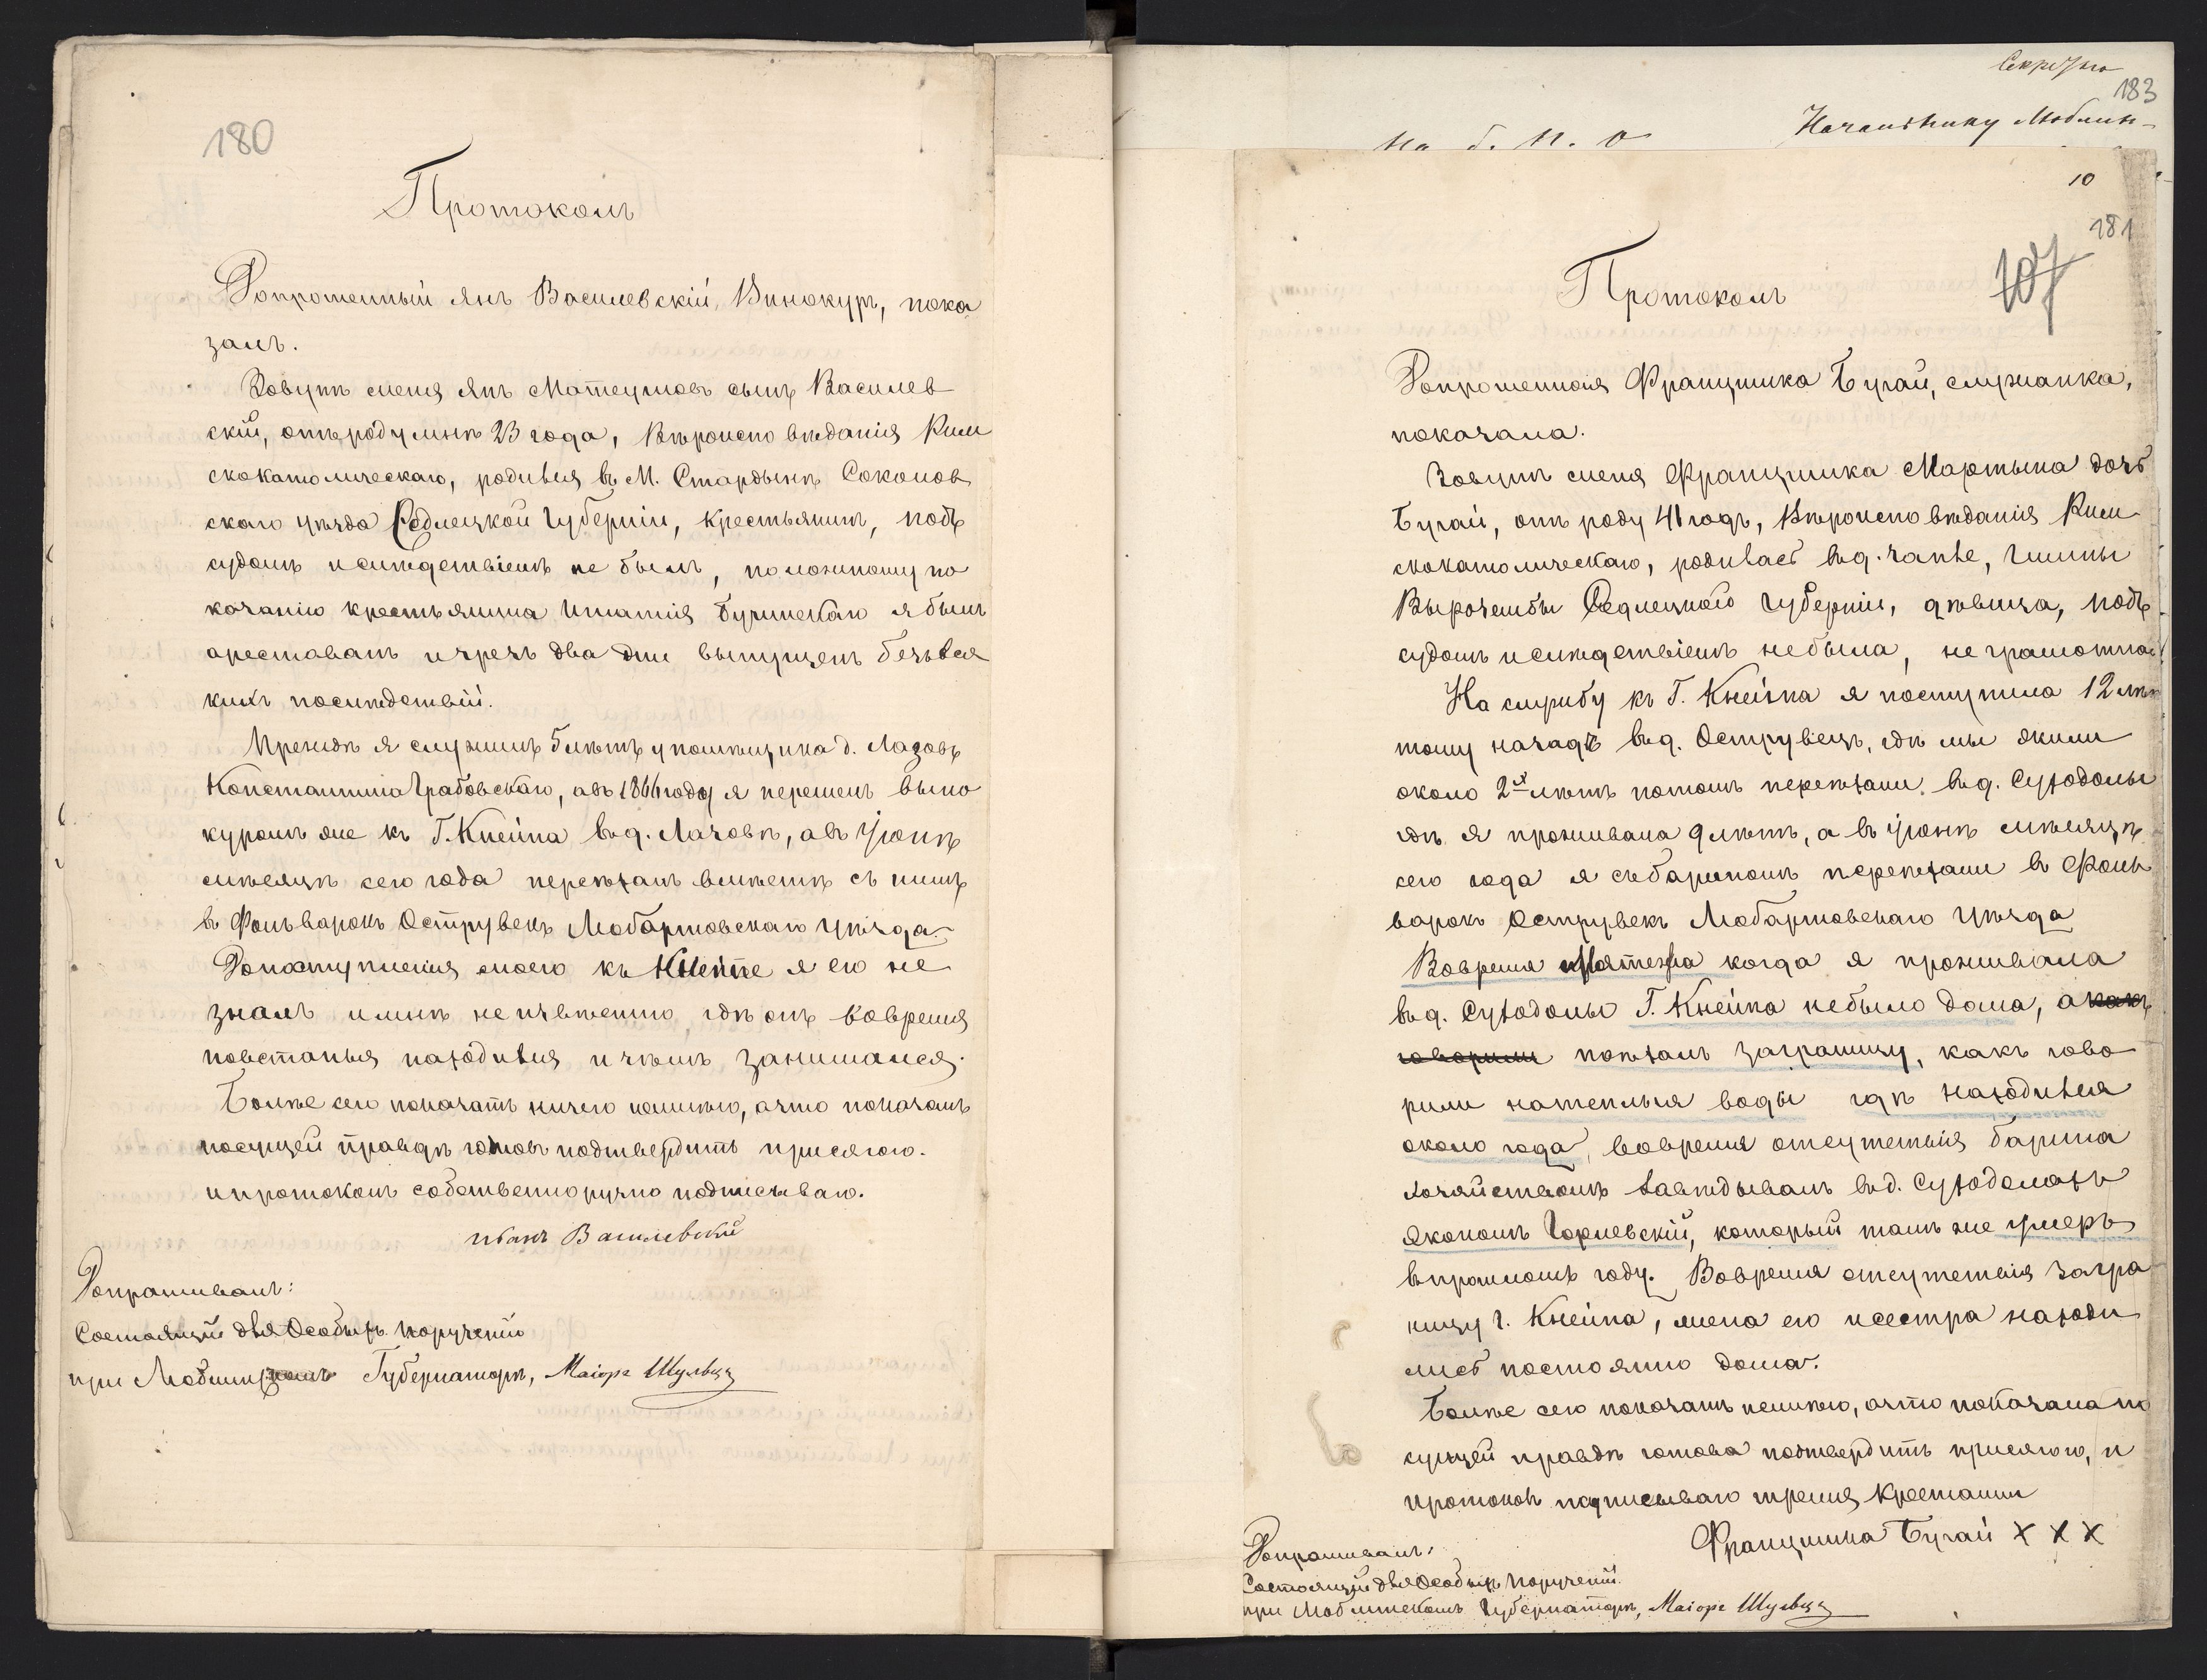 180
Протоколъ
Допрошенный Янъ Василевскій, Винокуръ, пока
залъ.
Зовутъ меня Янъ Матеушовъ сынъ Василев
скій, отъ роду мнѣ 23 года, Вѣроисповѣданія Рим
скокатолическаго, родился въ М. Стардынѣ Соколов
скаго уѣзда Седлецкой Губерніи, крестьянинъ, подъ
судомъ и слѣдствіемъ не былъ, по ложному по
казанію крестьянина Игнатія Бучинскаго я былъ
арестованъ и чрезъ два дни выпущенъ безъ вся
кихъ послѣдствій.
Прежде я служилъ 5 лѣтъ у помѣщика д. Лазовъ
Константина Грабовскаго, а въ 1866 году я перешелъ вино
куромъ же къ Г. Кнейпа в д. Лазовѣ, а въ Іюнѣ
мѣсяцѣ сего года переѣхалъ вмѣстѣ съ нимъ
в Фольварокъ Острувекъ Любартовскаго уѣзда.
До поступленія моего къ Кнейпе я его не
зналъ и мнѣ не извѣстно, гдѣ онъ во время
повстанья находился и чѣмъ занимался.
Болѣе сего показать ничего не имѣю, а что показалъ
по сущей правдѣ готовъ подтвердить присягою.
и протоколъ собственноручно подписываю.
Иванъ Василевскій
Допрашивалъ:
Состоящій для Особыхъ порученій
при Люблинскомъ Губернаторѣ, Маіоръ Шульцъ
Секретно
183
Начальнику Люблин-
На б. П. О
10
181
107
Протоколъ
Допрошенная Францишка Бугай, служанка,
показала.
Зовутъ меня Францишка Мартына дочь
Бугай, отъ роду 41 годъ, Вѣроисповѣданія Рим
скокатолическаго, родилась въ д. Чапле, Гмины
Вырозембы Седлецкой Губерніи, дѣвица, подъ
судомъ и слѣдствіемъ не была, не грамотная
На службу къ Г. Кнейпа я поступила 12 лѣт
тому назадъ въ д. Острувецъ, гдѣ мы жили
около 2х лѣтъ потомъ переѣхали въ д. Суходолы
гдѣ я проживала 9 лѣтъ, а въ Іюнѣ мѣсяцѣ
сего года я съ бариномъ переѣхали в Фоль
варокъ Острувекъ Любартовскаго уѣзда
Во время мятежа когда я проживала
въ д. Суходолы Г. Кнейпа не было дома, а какъ
говорили поѣхалъ заграницу, какъ гово
рили на теплыя воды гдѣ находился
около года, во время отсутствія барина
хозяйствомъ завѣдывалъ въ д. Суходолахъ
Экономъ Горлевскій, который тамъ же умеръ
в прошломъ году. Во время отсутствія загра
ницу г. Кнейпа, жена его и сестра находи
лись постоянно дома.
Болѣе сего показать не имѣю, а что показала по
сущей правдѣ готова подтвердить присягою, и
протоколъ подписываю тремя крестами
Францишка Бугай X X X
Допрашивалъ:
Состоящій для Особыхъ Порученій
при Люблинскомъ Губернаторѣ, Маіоръ Шульцъ